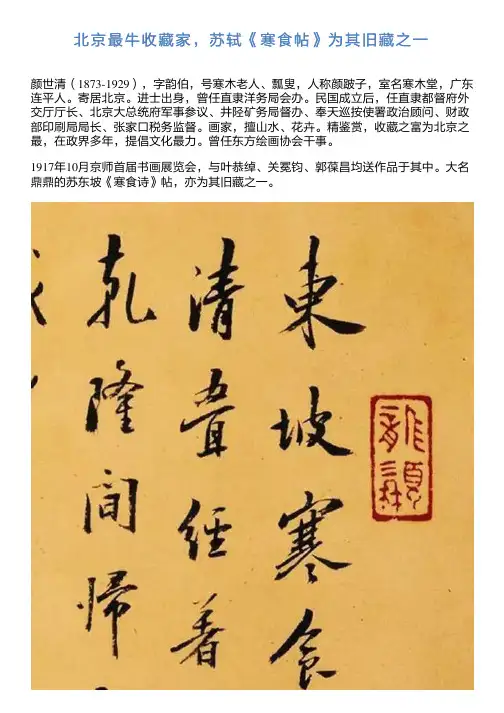 北京最牛收藏家，苏轼《寒食帖》为其旧藏之一
颜世清（1873-1929），字韵伯，号寒木老人、瓢叟，人称颜跛子，室名寒木堂，广东
连平人。寄居北京。进士出身，曾任直隶洋务局会办。民国成立后，任直隶都督府外
交厅厅长、北京大总统府军事参议、井陉矿务局督办、奉天巡按使署政治顾问、财政
部印刷局局长、张家口税务监督。画家，擅山水、花卉。精鉴赏，收藏之富为北京之
最，在政界多年，提倡文化最力。曾任东方绘画协会干事。
1917年10月京师首届书画展览会，与叶恭绰、关冕钧、郭葆昌均送作品于其中。大名
鼎鼎的苏东坡《寒食诗》帖，亦为其旧藏之一。
東坡寒食
清叠經著
乾隆間歸